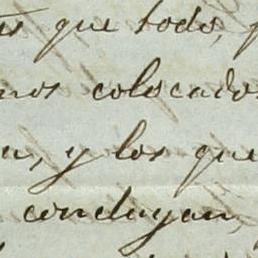 que todo,
colocados
y los que
concluyan,